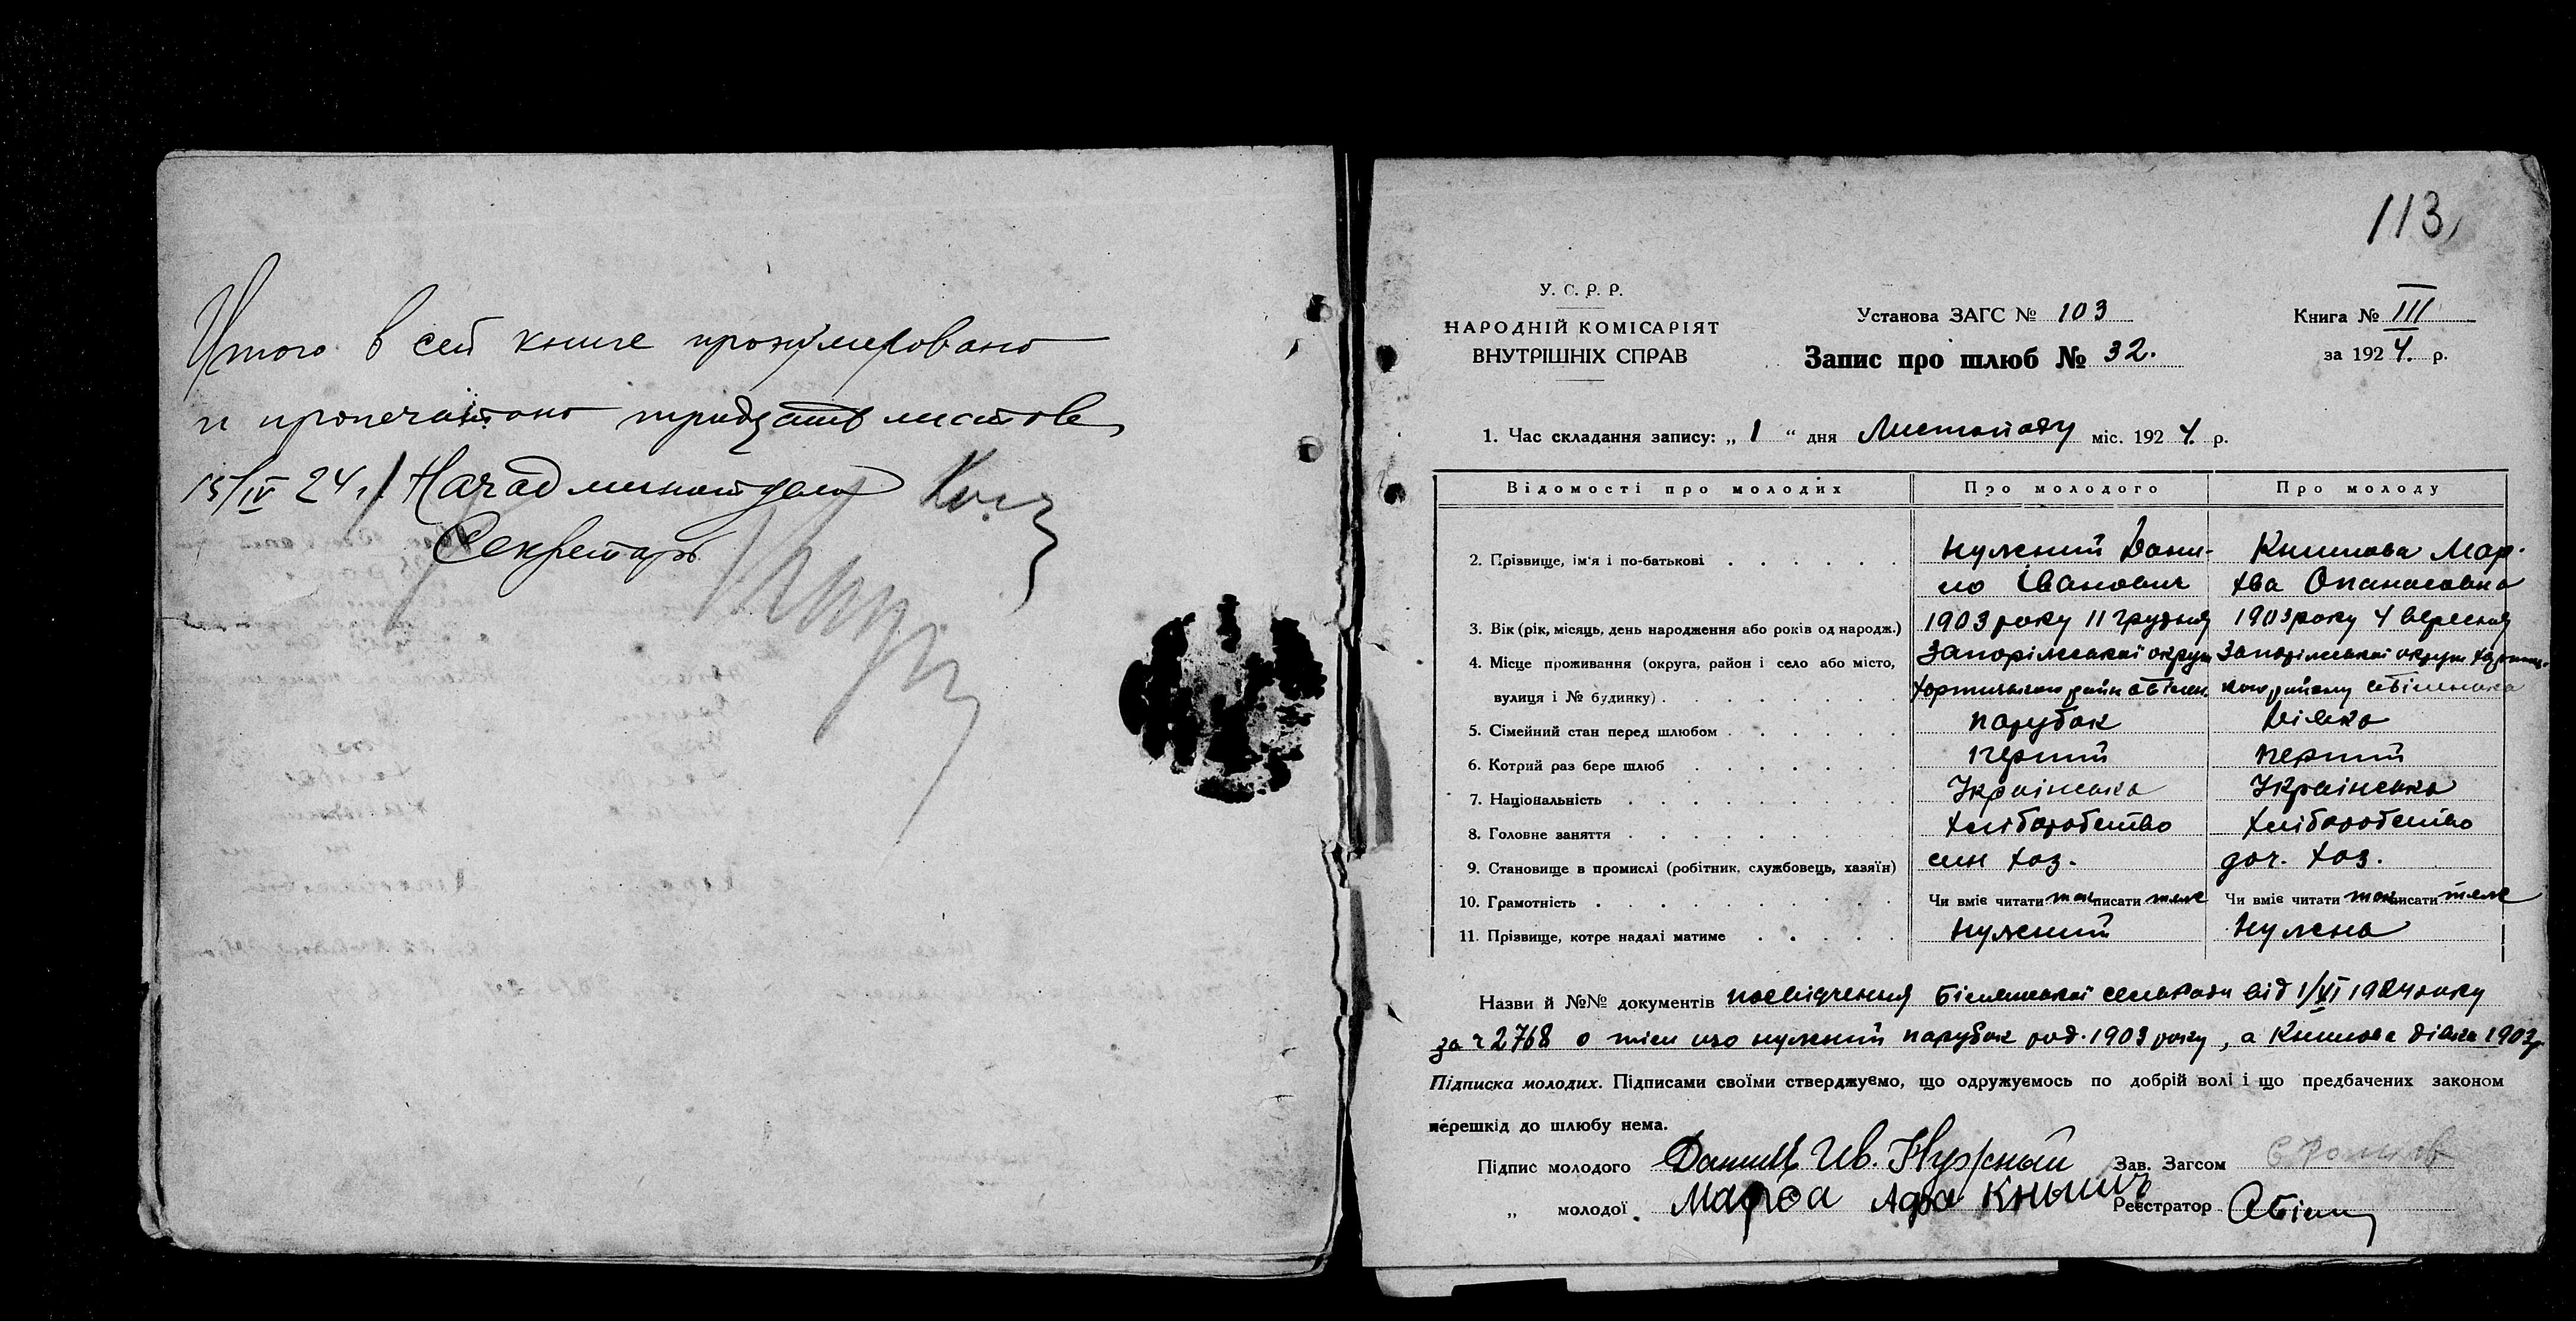 Итого в сей книге пронумеровано
и пропечатано тридцать листов
15/IV 24 г.
Секретарь
113
У. С. Р. Р.
НАРОДНІЙ КОМІСАРІЯТ
ВНУТРІШНІХ СПРАВ
Установа ЗАГС № 103
Запис про шлюб № 32.
Книга № III
за 1924. р.
1. Час складання запису: „ 1 “ дня Листопаду міс. 1924. р.
Відомості про молодих Про молодого Про молоду
2. Прізвище, ім'я і по-батькові Нужний Дани- Книшова Мар-
ло Іванович хва Опанасовна
3. Вік (рік, місяць, день народження або років од народж.) 1903 року 11 грудня 1903 року 4 вересня
4. Місце проживання (округа, район і село або місто, Запоріжської округи Запоріжської округи
вулиця і № будинку)
5. Сімейний стан перед шлюбом парубок дівка
6. Котрий раз бере шлюб перший перший
7. Національність Українська Українська
8. Головне заняття хліборобство хліборобство
9. Становище в промислі (робітник, службовець, хазяїн) син хаз. доч. хаз.
10. Грамотність Чи вміє читати так писати теже Чи вміє читати так писати теже
11. Прізвище, котре надалі матиме Нужний Нужна
Назви й №№ документів посвідчення Біленської сельради від 1/VI 1924 року
за ч 2768 о тім що нужний парубок род. 1903 року, а Книшова дівка 1903 р.
Підписка молодих. Підписами своїми стверджуємо, що одружуємось по добрій волі і що предбачених законом
перешкід до шлюбу нема.
Підпис молодого Данил Ив. Нужный Зав. Загсом
„ молодої Марфа Афа Кныш Реєстратор